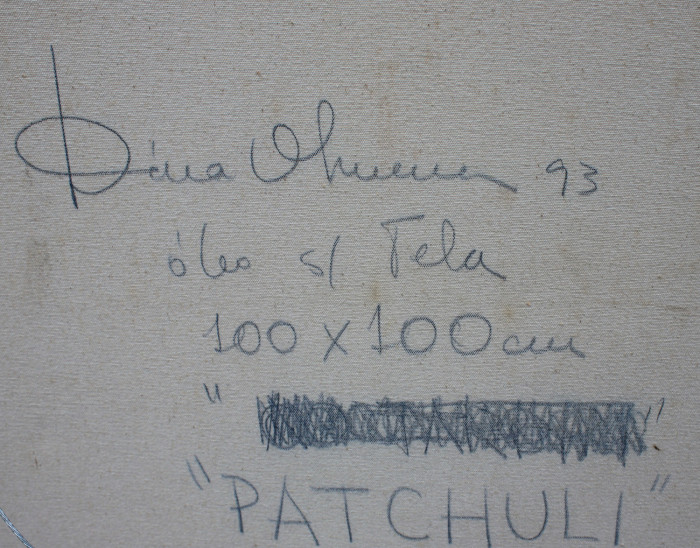 Dina 93
óleo s/ Tela
100 x 100 cm
"PATCHULI"